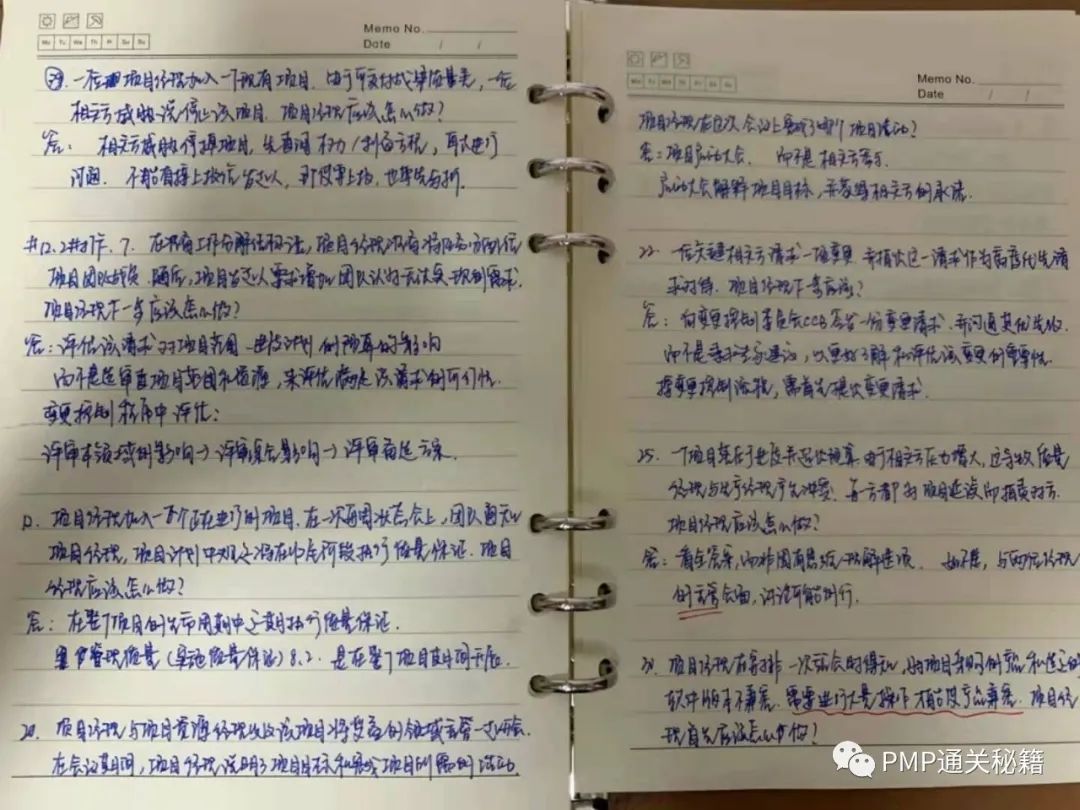 Memo No.
Date / /
Mo Tu We Th Fr Sa Su
29. 一位项目经理加入一个现有项目. 由于可交付成果质量差, 一位
相关方威胁说停止该项目. 项目经理应该怎么做?
答: 相关方威胁停掉项目, 先查阅权力/利益方格, 再次进行
沟通. 不能直接上报给发起人, 即使要上报, 也要先分析.
#12.2 7. 在没有工作分解结构, 项目经理没有将任务分配给
项目团队成员. 随后, 项目发起人要求增加团队认为无法实现的需求.
项目经理下一步应该怎么做?
答: 评估该请求对项目范围 进度计划 的预算的影响
而不是连审查项目范围和值源, 来评估满足该请求的可行性.
变更控制程序中评估:
评审本领域的影响→评审综合影响→评审备选方案.
项目经理加入一个正在进行的项目. 在一次每周状态会上, 团队通知
项目经理, 项目计划中规定将在收尾阶段执行质量保证. 项目
经理应该怎么做?
答: 在整个项目的生命周期中定期执行质量保证.
管理质量(实施质量保证)8.2. 是在整个项目期间开展.
20. 项目经理与项目资源经理以及该项目将影响的领域主管一起开会.
在会议期间, 项目经理说明了项目目标和完成项目所需的活动.
Memo No.
Date / /
Mo Tu We Th Fr Sa Su
项目经理在这次会议上完成了哪个项目活动?
答: 项目启动大会. 而不是相关方参与.
启动大会解释项目目标, 并获得相关方的承诺.
22. 一位关键相关方请求一项变更. 并指出这一请求作为高优先请
求对待. 项目经理下一步应该?
答: 向变更控制委员会CCB签发一份变更请求. 并沟通其优先级.
而不是寻求专家建议, 以更好了解和评估该变更的重要性.
按变更控制流程, 需首先提出变更请求.
25. 一个项目落后于进度并超出预算. 由于相关方压力增大, 这导致质量
经理与生产经理产生冲突. 每一方都为项目延误而指责对方.
项目经理应该怎么做?
答: 看全答案, 而非固有思维理解选项. 如不是, 与两位经理
的主管会面, 讨论可能的行.
31. 项目经理在安排一次会时得知, 项目采购的产品和选定的
软件版本不兼容. 需要进行大量操作才能使产品兼容. 项目经
理首先应该怎么做?
PMP通关秘籍